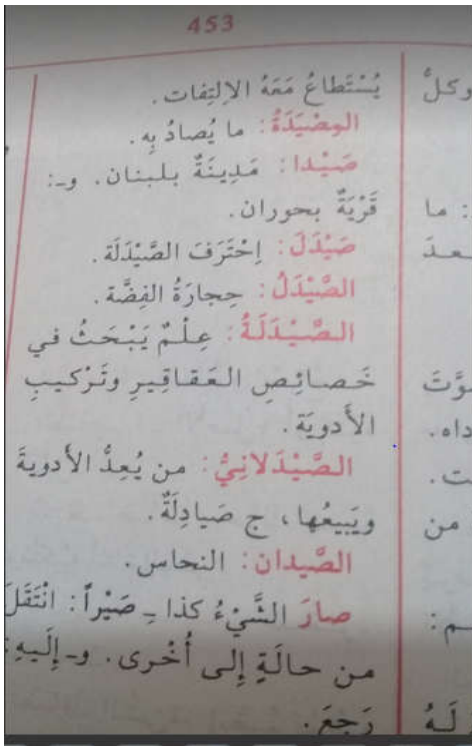 453
وكلُّ
: ما
ـعـدَ
ـوَّتَ
داه.
ـت.
من
ـم:
لَـهُ
يُسْتَطاعُ مَعَهُ الاِلتِفات.
المِصْيَدَةُ: ما يُصادُ بِه.
صَيْدا: مَدِينَةٌ بلبنان. و-:
قَرْيَةٌ بحوران.
صَيْدَلَ: اِحْتَرَفَ الصَّيْدَلَة.
الصَّيْدَلُ: حِجارَةُ الفِضَّة.
الصَّيْدَلَةُ: عِلْمٌ يَبْحَثُ في
خَصائِصِ العَقاقِيرِ وتَرْكيبِ
الأَدويَة.
الصَّيْدَلانِيُّ: من يُعِدُّ الأَدويةَ
ويَبيعُها، ج صَيادِلَةٌ.
الصَّيدان: النحاس.
صارَ الشَّيْءُ كذا ـِ صَيْراً: انْتَقَلَ
من حالَةٍ إِلى أُخْرى. و- إِلَيهِ:
رَجَعَ.